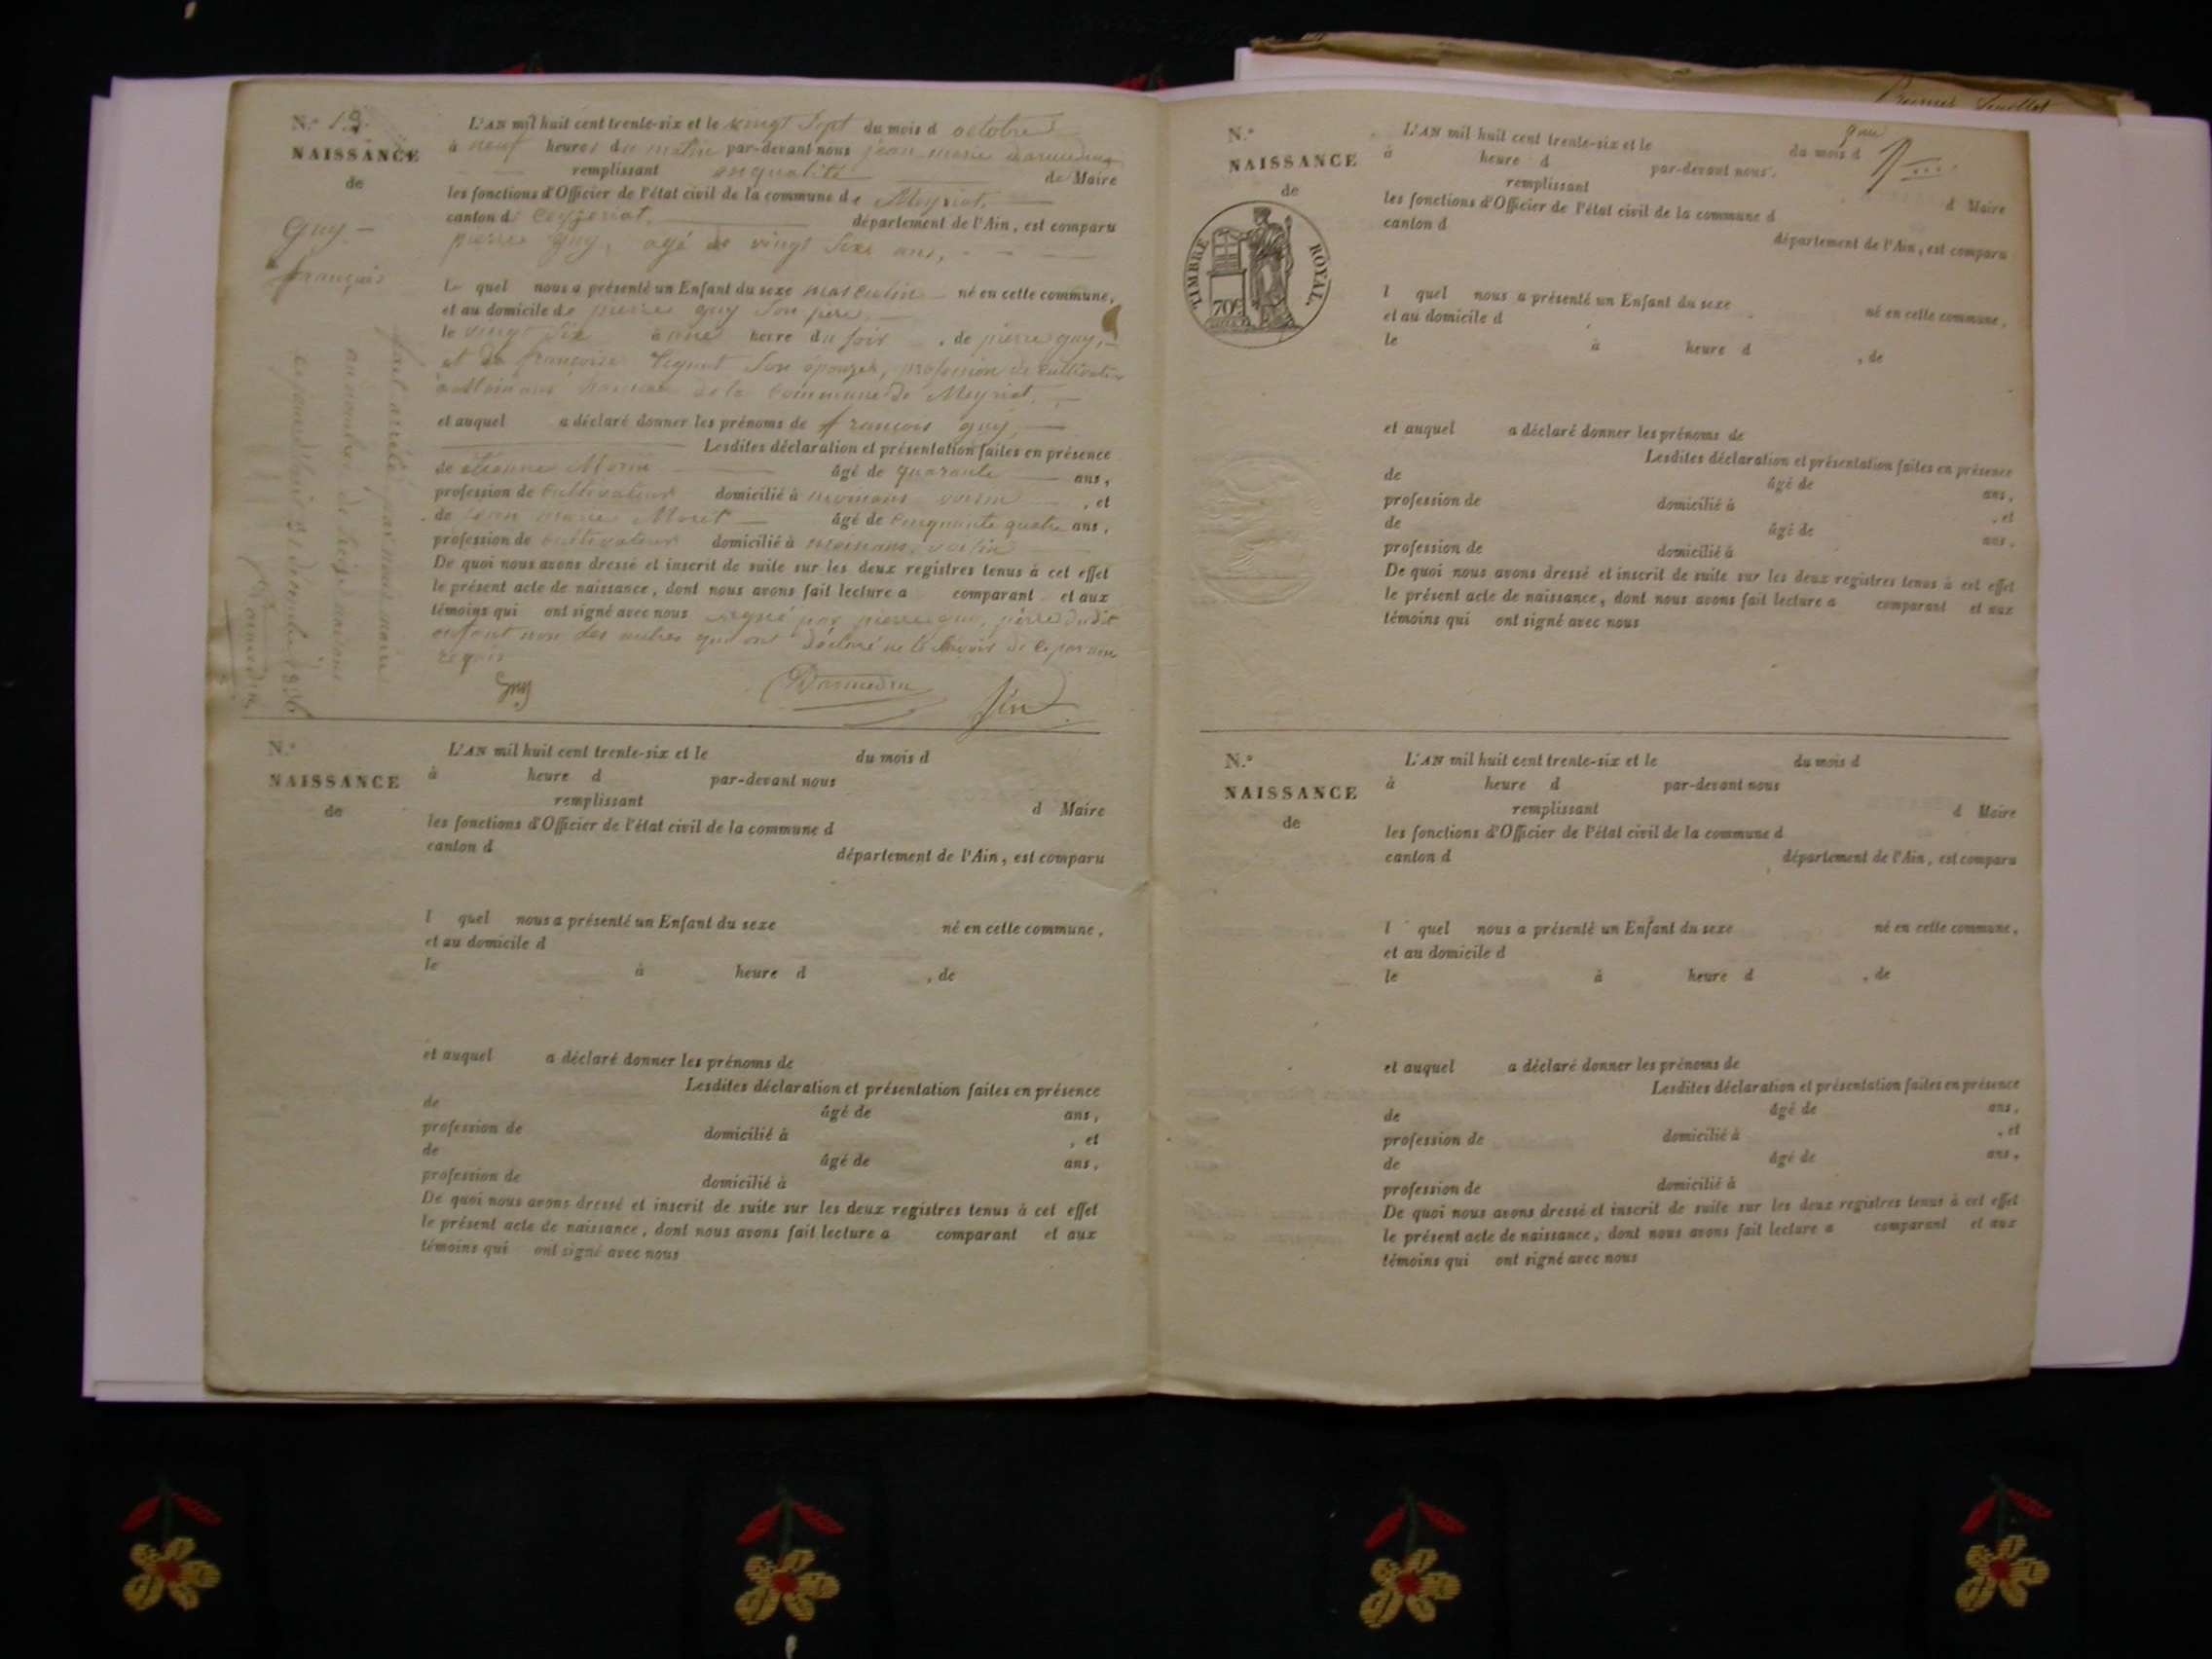 N.° 13.
NAISSANCE
de
Guy
françois
L'AN mil huit cent trente-six et le vingt Sept du mois d octobre
à neuf heures du matin par-devant nous jean marie Darmedin
remplissant en qualité de Maire
les fonctions d'Officier de l'état civil de la commune de Meyriat,
canton de Ceyzeriat, département de l'Ain, est comparu
pierre guy, agé de vingt Sixe ans,
Le quel nous a présenté un Enfant du sexe masculin né en cette commune,
et au domicile de pierre guy Son père,
le vingt Six à une heure du soir , de pierre guy,
et de françoise Son épouze, profession de cultivateur
hameau de la Commune de Meyriat,
et auquel a déclaré donner les prénoms de françois guy,
Lesdites déclaration et présentation faites en présence
de etienne Morin âgé de quarante ans,
profession de cultivateur domicilié à voisin , et
de jean marie Moret âgé de cinquante quatre ans,
profession de cultivateur domicilié à voisin
De quoi nous avons dressé et inscrit de suite sur les deux registres tenus à cet effet
le présent acte de naissance, dont nous avons fait lecture a comparant et aux
témoins qui ont signé avec nous signé par pierre guy, père dudit
enfant non des autres qui ont déclaré ne le savoir de ce
requis
Guy Darmedin fin
clos et arrêté par nous maire
au nombre de treize naissances
31 décembre 1836
Darmedin
N.°
NAISSANCE
de
L'AN mil huit cent trente-six et le du mois d
à heure d par-devant nous
remplissant d Maire
les fonctions d'Officier de l'état civil de la commune d
canton d département de l'Ain, est comparu
l quel nous a présenté un Enfant du sexe né en cette commune,
et au domicile d
le à heure d , de
et auquel a déclaré donner les prénoms de
Lesdites déclaration et présentation faites en présence
de âgé de ans,
profession de domicilié à , et
de âgé de ans,
profession de domicilié à
De quoi nous avons dressé et inscrit de suite sur les deux registres tenus à cet effet
le présent acte de naissance, dont nous avons fait lecture a comparant et aux
témoins qui ont signé avec nous
Premier feuillet
N.°
NAISSANCE
de
TIMBRE ROYAL
70c
L'AN mil huit cent trente-six et le du mois d
à heure d par-devant nous,
remplissant d Maire
les fonctions d'Officier de l'état civil de la commune d
canton d département de l'Ain, est comparu
l quel nous a présenté un Enfant du sexe né en cette commune,
et au domicile d
le à heure d , de
et auquel a déclaré donner les prénoms de
Lesdites déclaration et présentation faites en présence
de âgé de ans,
profession de domicilié à , et
de âgé de ans,
profession de domicilié à
De quoi nous avons dressé et inscrit de suite sur les deux registres tenus à cet effet
le présent acte de naissance, dont nous avons fait lecture a comparant et aux
témoins qui ont signé avec nous
N.°
NAISSANCE
de
L'AN mil huit cent trente-six et le du mois d
à heure d par-devant nous
remplissant d Maire
les fonctions d'Officier de l'état civil de la commune d
canton d département de l'Ain, est comparu
l quel nous a présenté un Enfant du sexe né en cette commune,
et au domicile d
le à heure d , de
et auquel a déclaré donner les prénoms de
Lesdites déclaration et présentation faites en présence
de âgé de ans,
profession de domicilié à , et
de âgé de ans,
profession de domicilié à
De quoi nous avons dressé et inscrit de suite sur les deux registres tenus à cet effet
le présent acte de naissance, dont nous avons fait lecture a comparant et aux
témoins qui ont signé avec nous